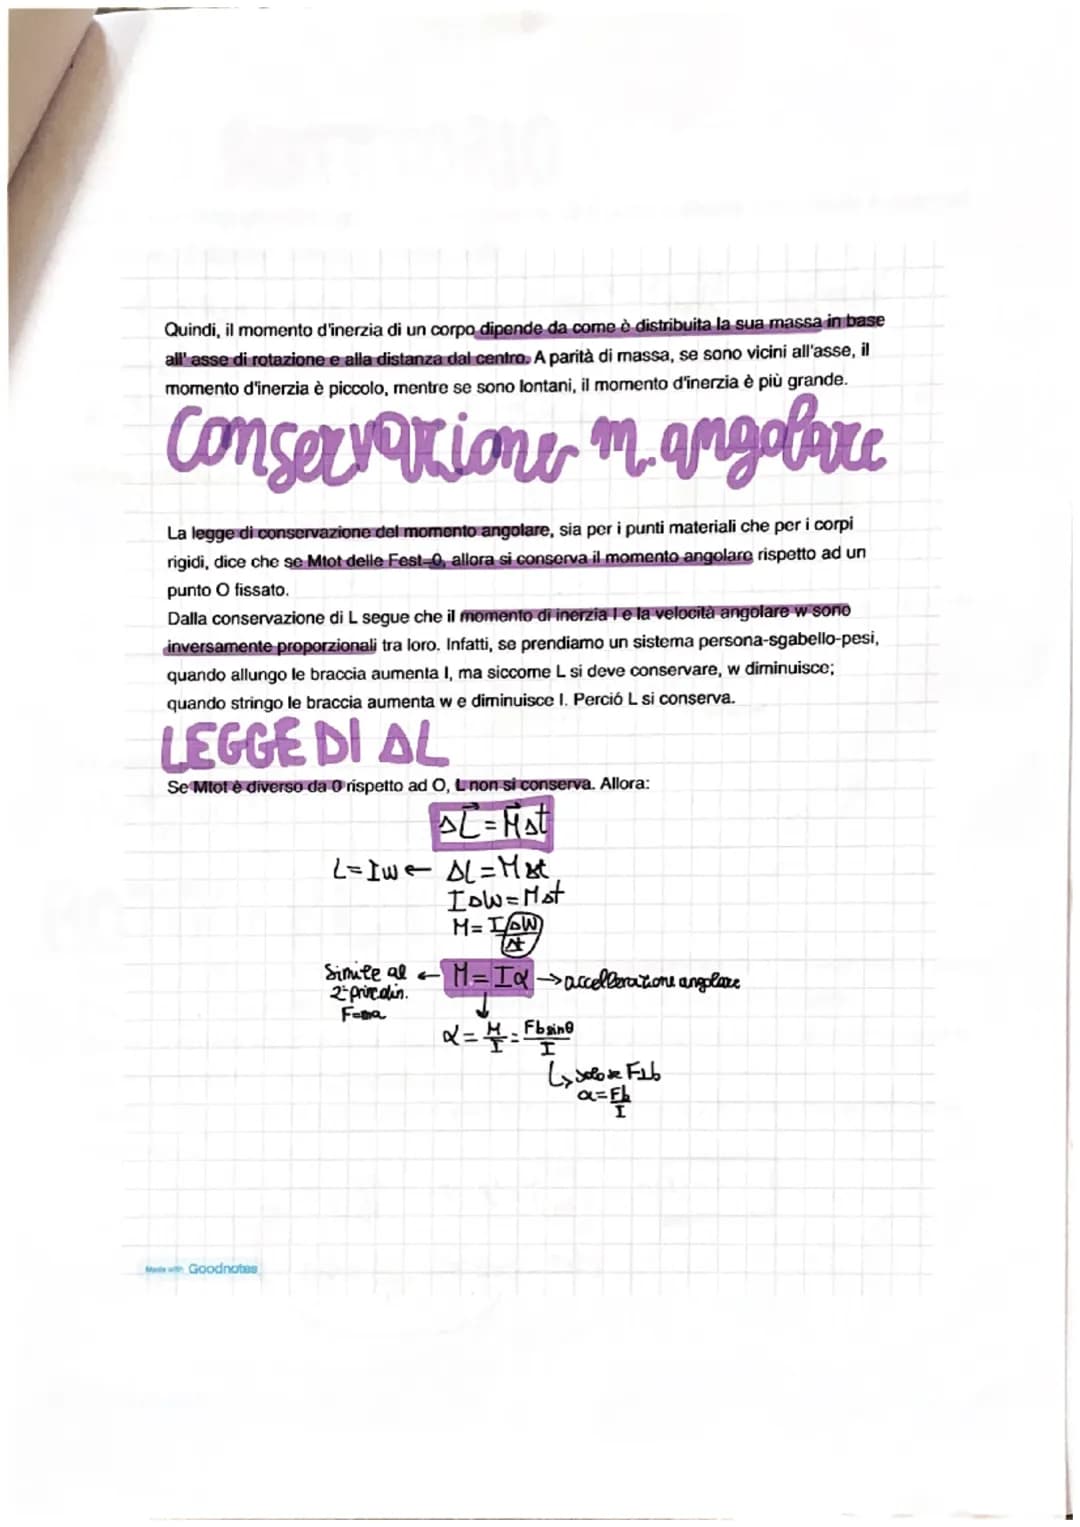 Quindi, il momento d'inerzia di un corpo dipende da come è distribuita la sua massa in base
all' asse di rotazione e alla distanza dal centro. A parità di massa, se sono vicini all'asse, il
momento d'inerzia è piccolo, mentre se sono lontani, il momento d'inerzia è più grande.
Conservazione m. angolare
La legge di conservazione del momento angolare, sia per i punti materiali che per i corpi
rigidi, dice che se Mtot delle Fest=0, allora si conserva il momento angolare rispetto ad un
punto O fissato.
Dalla conservazione di L segue che il momento di inerzia I e la velocità angolare w sono
inversamente proporzionali tra loro. Infatti, se prendiamo un sistema persona-sgabello-pesi,
quando allungo le braccia aumenta I, ma siccome L si deve conservare, w diminuisce;
quando stringo le braccia aumenta w e diminuisce I. Perció L si conserva.
LEGGE DI ΔL
Se Mtot è diverso da 0 rispetto ad O, L non si conserva. Allora:
ΔL⃗ = M⃗Δt
L=Iw ← ΔL=MΔt
IΔW=MΔt
M= I ΔW/Δt
Simile al ← M= Iα → accellerazione angolare
2° princ.din.
F=ma
↓
α = M/I = Fb sinθ/I
↳ solo se F⊥b
α= Fb/I
Made with Goodnotes